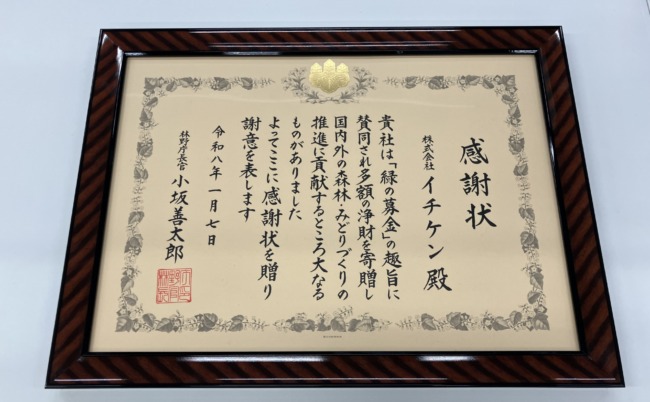 感謝状
株式会社 イチケン 殿
貴社は「緑の募金」の趣旨に
賛同され多額の浄財を寄贈し
国内外の森林・みどりづくりの
推進に貢献するところ大なる
ものがありました
よってここに感謝状を贈り
謝意を表します
令和八年一月七日
林野庁長官 小坂善太郎